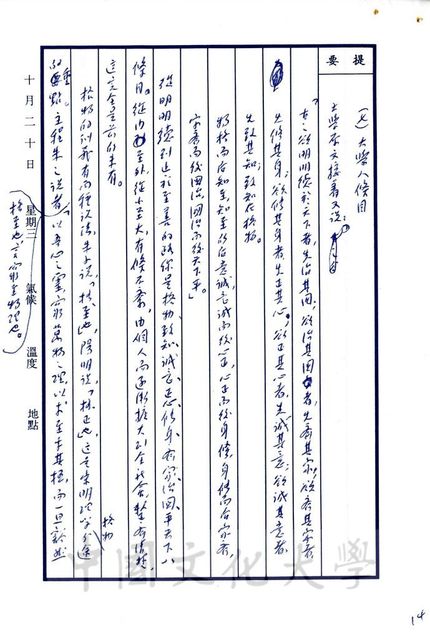 提要
(七) 大學八條目
大學原文接着又說:
「古之欲明明德於天下者,先治其國,欲治其國者,先齊其家,欲齊其家者
先修其身,欲修其身者,先正其心,欲正其心者,先誠其意,欲誠其意者
先致其知;致知在格物。
物格而后知至,知至而后意誠,意誠而後心正,心正而後身修,身修而后家齊,
家齊而後國治,國治而後天下平。」
從明明德到止於至善的路線是格物、致知、誠意、正心、修身、齊家、治國、平天下八
條目。從內至外,從小至大,有條不紊,由個人而逐漸擴大到全社會,
這完全是
格物
格物的訓義有兩種說法,朱子說「格,至也」,陽明說「格,正也」,這是宋明理學分
的重點,主程朱之說者,以吾心之靈窮萬物之理,以求至乎其極,而一旦豁然
格至也,言窮至物理也。
十月二十日 星期三 氣候 溫度 地點
中國文化大學
14